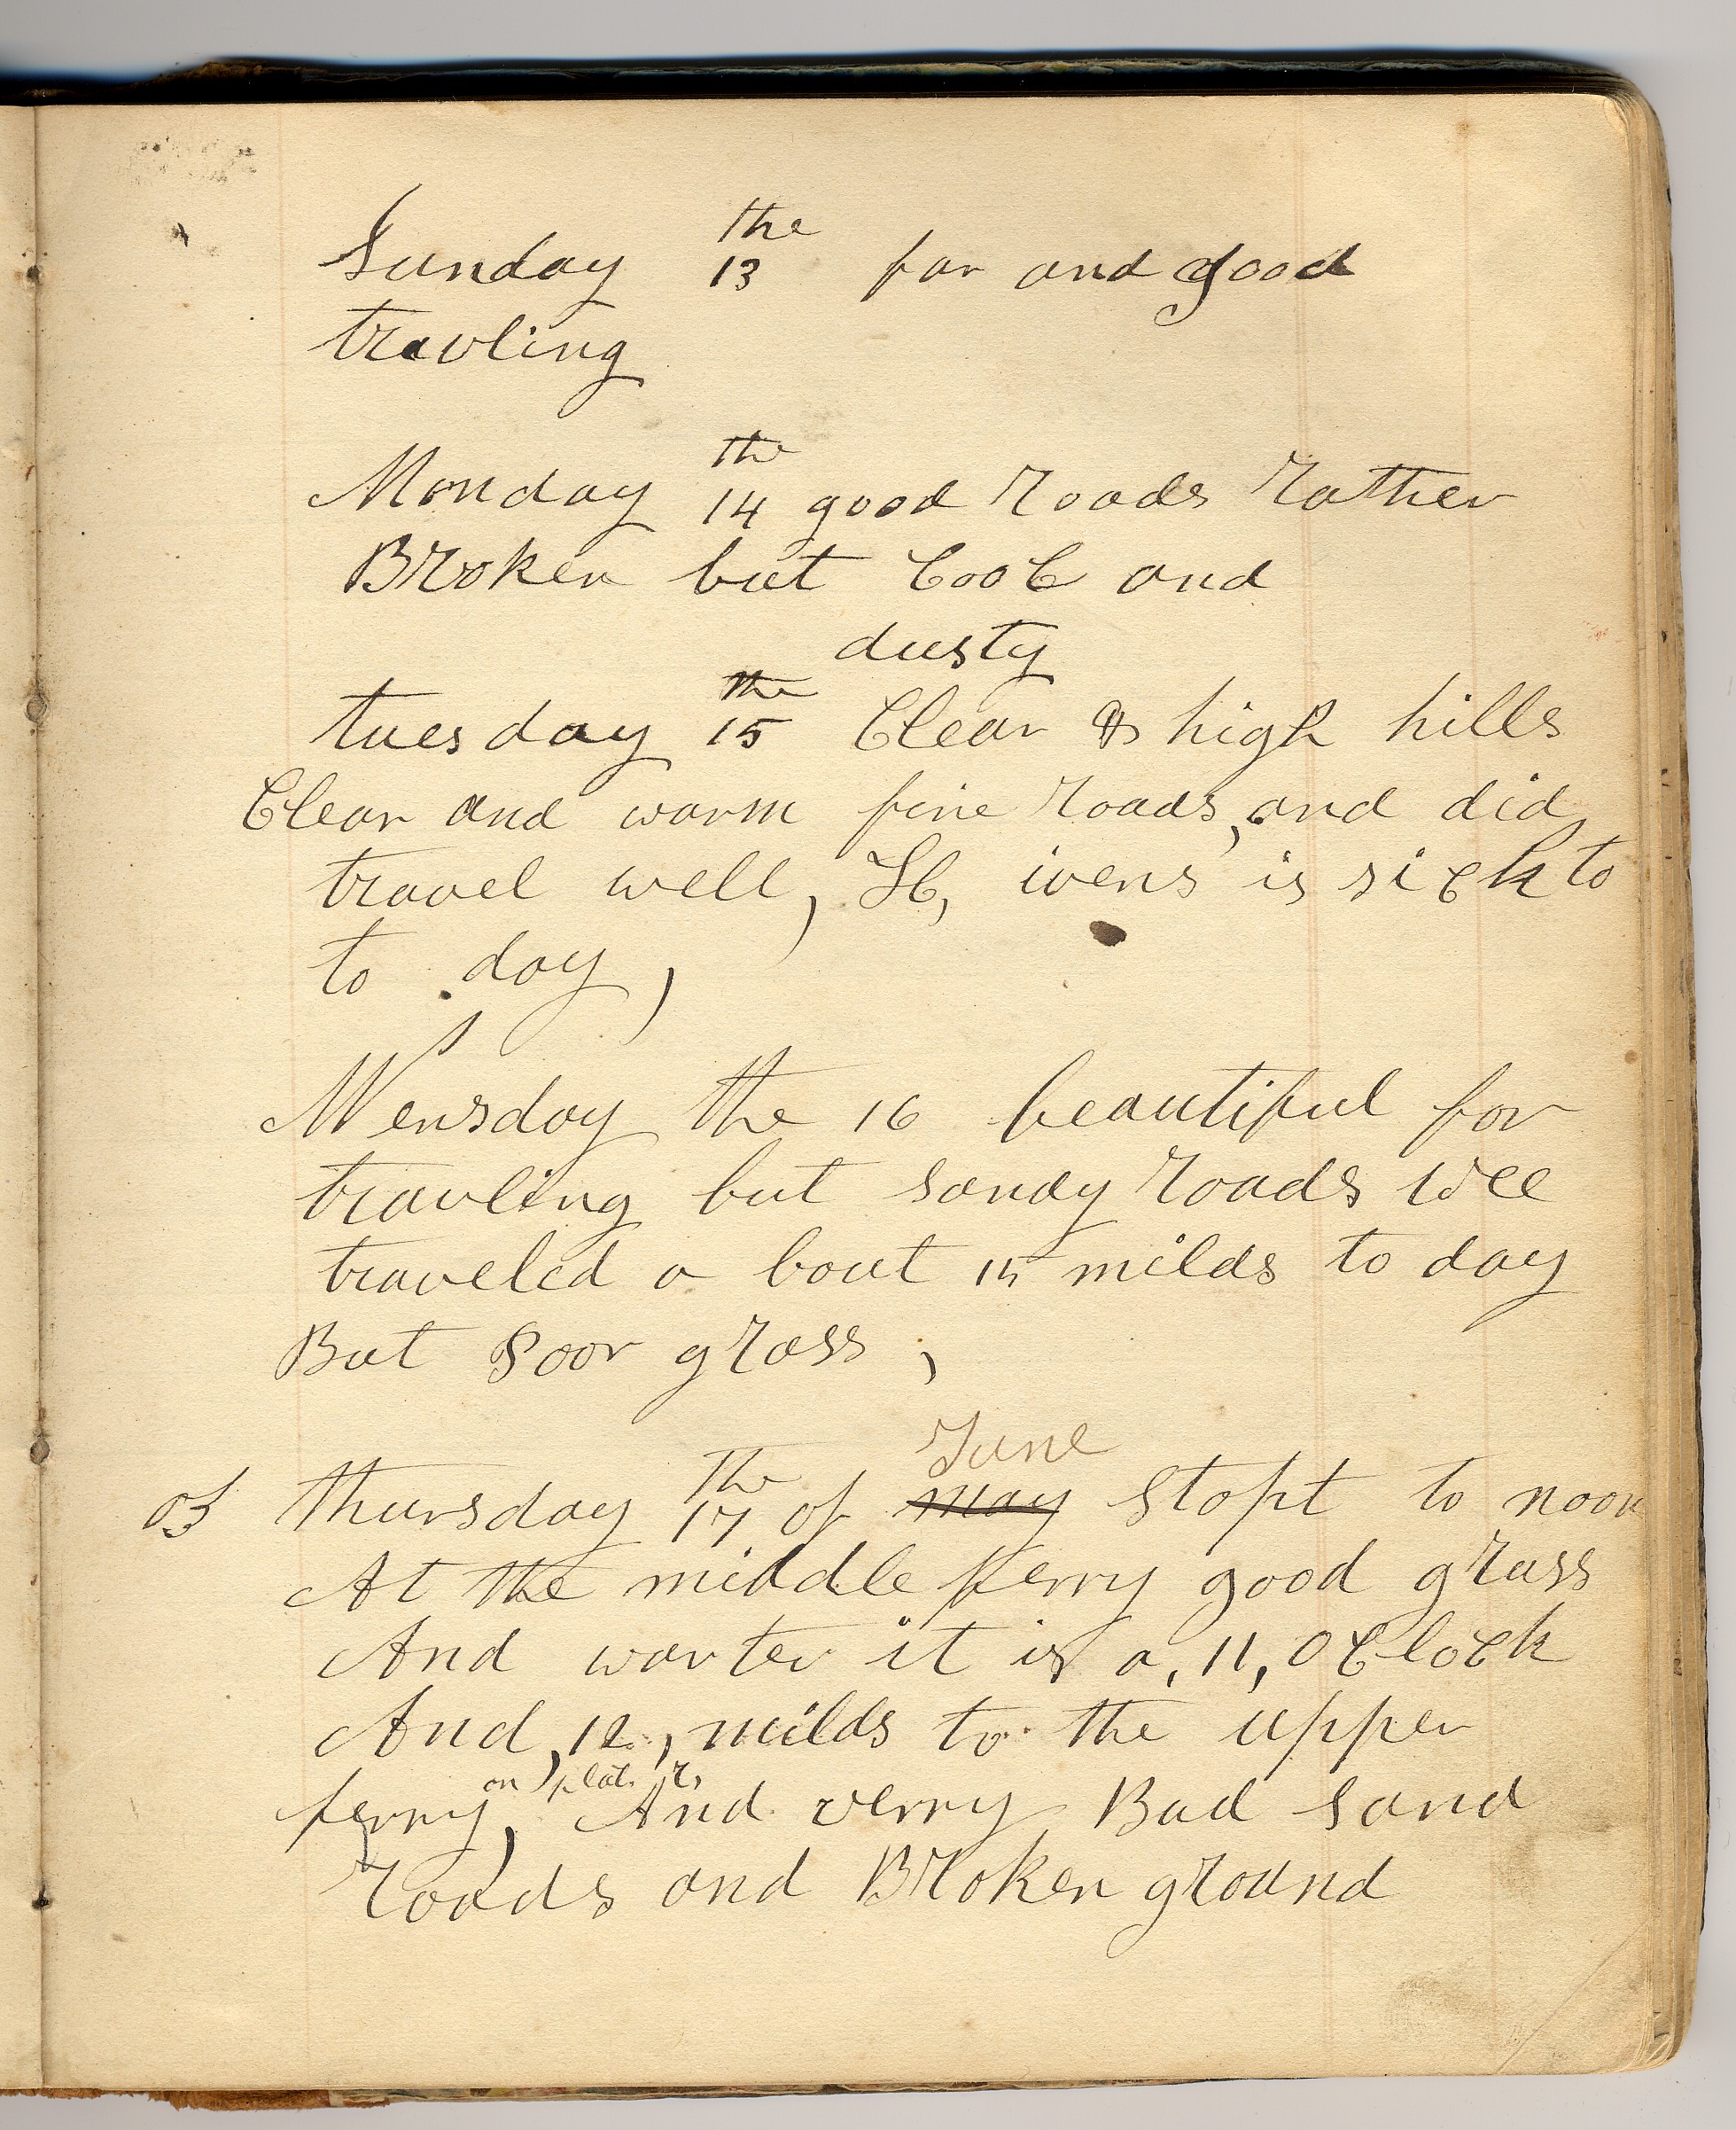 Sunday the 13 far and good
travling
Monday the 14 good roads rather
Broken but Cool and
dusty
tuesday the 15 Clear & high hills
Clear and warm fine roads, and did
travel well, H, ivens is sick to
to day,
Wensday the 16 beautiful for
travling but sandy roads Wee
traveled a bout 15 milds to day
But Poor grass,
of thursday the 17 of may June Stopt to noon
At the middle ferry good grass
And warter it is a, 11, O Clock
And, 12, milds to the upper
ferry, on plat. r, And verry Bad sand
roads and Broken ground